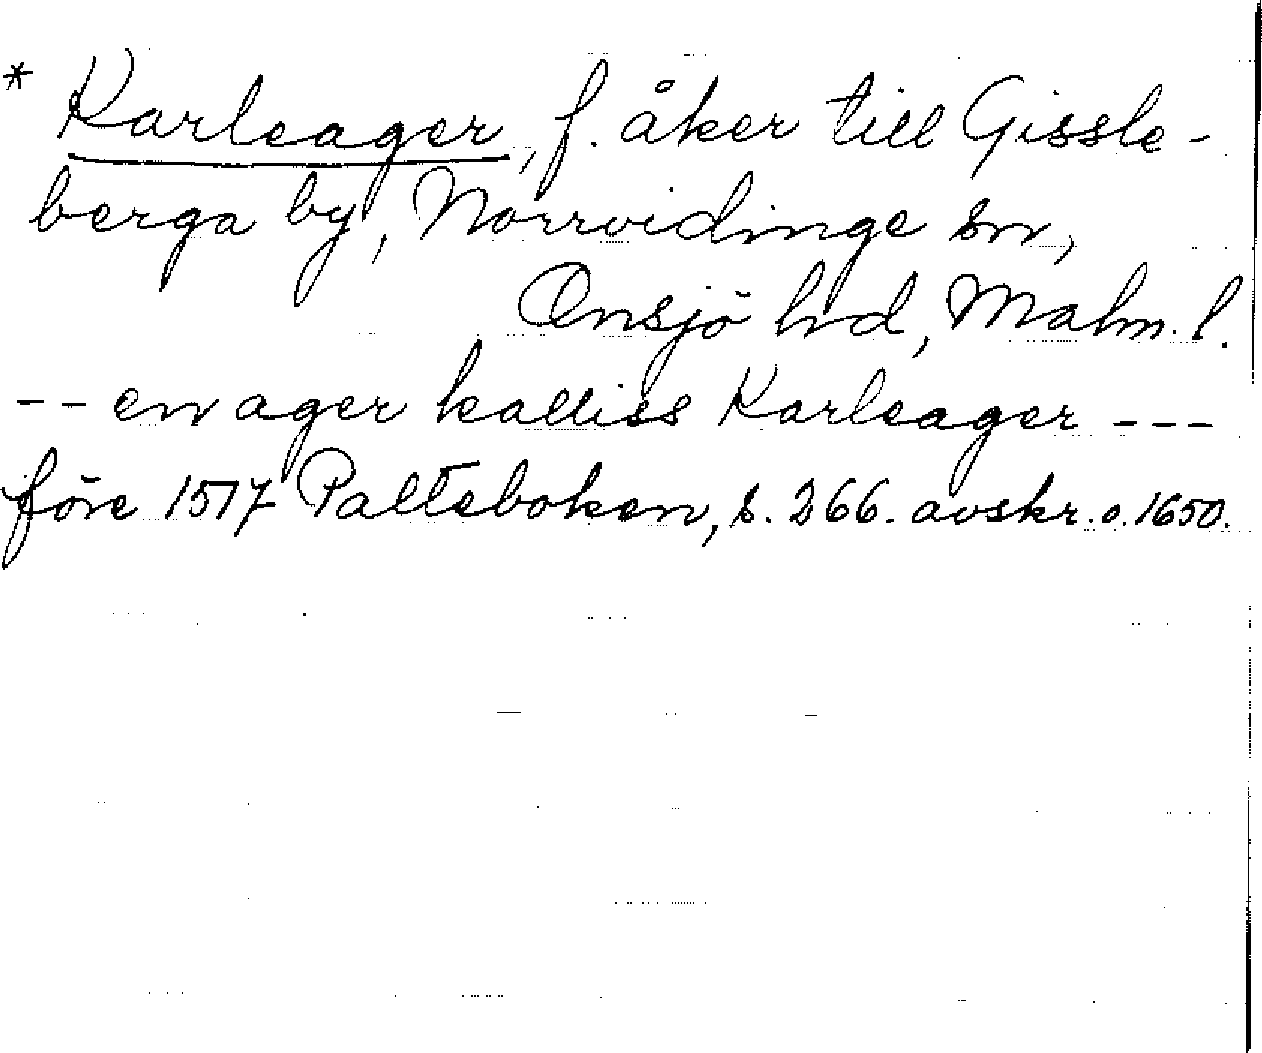 * Karleager, f. åker till Gissle-
berga by, Norrvidinge sn,
Onsjö hd, Malm. l.
-- en ager kalliss Karleager ---
före 1517 Palteboken, s. 266. avskr. o. 1650.